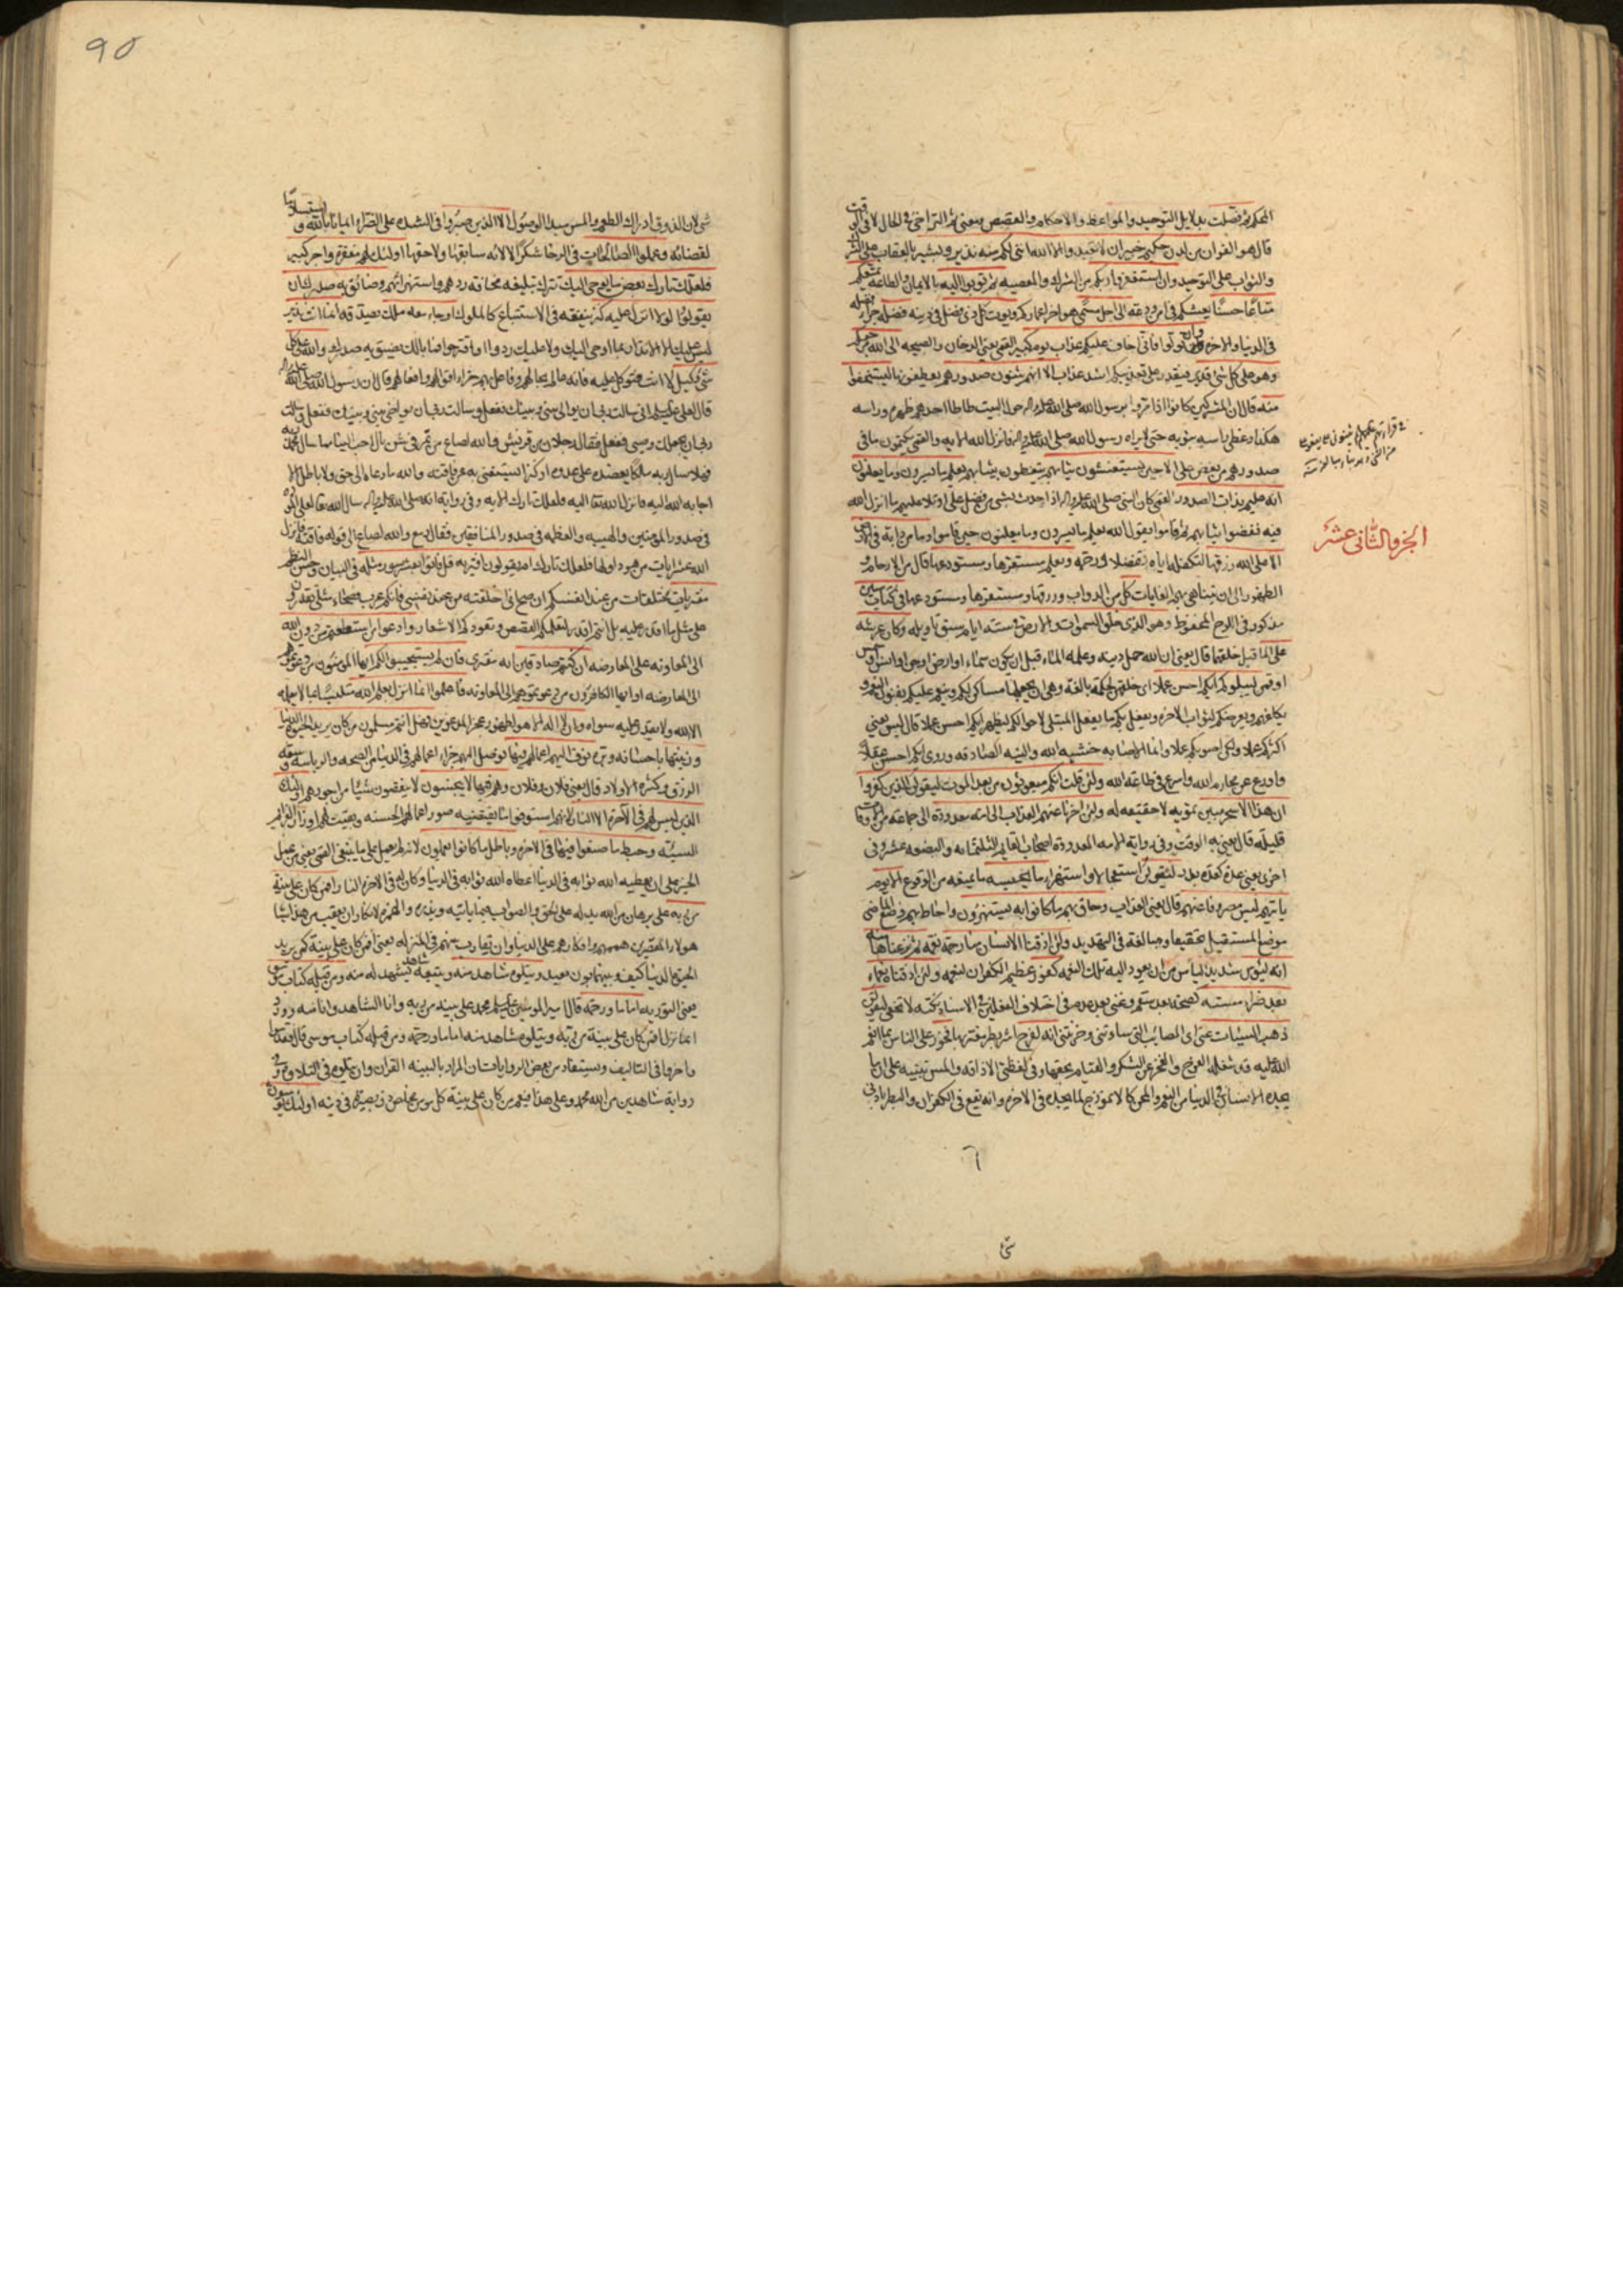 المحكم ثم فصلت بدلايل التوحيد والمواعظ والاحكام والقصص ومعنى ثم التراخي في الحال لا في الوقت
قال هو القران من لدن حكيم خبير ان لا تعبدوا الا الله انني لكم منه نذير وبشير بالعقاب على الشرك
والثواب على التوحيد وان استغفروا ربكم من الشرك والمعصية ثم توبوا اليه بالايمان والطاعة يمتعكم
متاعا حسنا يعيشكم في امن ودعة الى اجل مسمى هو اخر اعماركم ويؤت كل ذي فضل في دينه فضله جزاء فضله
في الدنيا والاخرة وان تولوا فاني اخاف عليكم عذاب يوم كبير القمي يعني الدخان والصيحة الى الله مرجعكم
وهو على كل شئ قدير فيقدر على تعذيبكم اشد عذاب الا انهم يثنون صدورهم يعطفونها ليستخفوا
منه قال ان المشركين كانوا اذا مروا برسول الله صلى الله عليه واله حول البيت طاطا احدهم ظهره وراسه
هكذا وغطى راسه بثوبه حتى لا يراه رسول الله صلى الله عليه واله فانزل الله الاية والقمي يكتمون ما في
صدورهم من بغض علي الا حين يستغشون ثيابهم يتغطون بثيابهم يعلم ما يسرون وما يعلنون
انه عليم بذات الصدور القمي كان النبي صلى الله عليه واله اذا احدث بشئ من فضل علي او تلا عليهم ما انزل الله
فيه نفضوا ثيابهم ثم قاموا يقول الله يعلم ما يسرون وما يعلنون حين قاموا وما من دابة في الارض
الا على الله رزقها لتكفله اياه تفضلا ورحمة ويعلم مستقرها ومستودعها قال من الارحام و
الظهور الى ان تتناهى بهم الغايات كل من الدواب ورزقها ومستقرها ومستودعها في كتاب مبين
مذكور في اللوح المحفوظ وهو الذي خلق السموات والارض في ستة ايام سبق تاويله وكان عرشه
على الماء قبل خلقهما قال يعني ان الله حمل دينه وعلمه الماء قبل ان يكون سماء او ارض او جن او انس او شمس
او قمر ليبلوكم ايكم احسن عملا اي خلقهن لحكمة بالغة وهي ان يجعلها مساكن لكم وينعم عليكم بفنون النعم و
يكلفكم ويعرضكم لثواب الاخرة ويفعل بكم ما يفعل المبتلي لاحوالكم ليظهر ايكم احسن عملا قال ليس يعني
اكثركم عملا ولكن اصوبكم عملا وانما الاصابة خشية الله والنية الصادقة وروي ايكم احسن عقلا
واورع عن محارم الله واسرع في طاعة الله ولئن قلت انكم مبعوثون من بعد الموت ليقولن الذين كفروا
ان هذا الا سحر مبين تمويه لا حقيقة له ولئن اخرنا عنهم العذاب الى امة معدودة الى جماعة من الاوقات
قليلة قال يعني به الوقت وفي رواية الامة المعدودة اصحاب القايم الثلثمائة والبضعة عشر وفي
اخرى يعني عدة كعدة بدر ليقولن استعجالا واستهزاء ما يحبسه ما يمنعه من الوقوع الا يوم
ياتيهم ليس مصروفا عنهم قال يعني العذاب وحاق بهم ما كانوا به يستهزؤن واحاط بهم وضع الماضي
موضع المستقبل تحقيقا ومبالغة في التهديد ولئن اذقنا الانسان منا رحمة نعمة ثم نزعناها منه
انه ليؤس شديد الياس من ان يعود اليه تلك النعمة كفور عظيم الكفران لنعمه ولئن اذقناه نعماء
بعد ضراء مسته كصحة بعد سقم وغنى بعد عدم وفي اختلاف الفعلين في الاسناد نكتة لا تخفى ليقولن
ذهب السيئات عني اي المصائب التي ساءتني وحزنتني انه لفرح اشر بطر مغتر بها فخور على الناس بما انعم
الله عليه قد شغله الفرح والفخر عن الشكر والقيام بحقها وفي لفظتي الاذاقة والمس تنبيه على ان ما
يجده الانسان في الدنيا من النعم والمحن كالانموذج لما يجده في الاخرة وانه يقع في الكفران والبطر بادنى
شئ
الجزو الثاني عشر
90
شئ لان الذوق ادراك الطعم والمس مبدا الوصول الا الذين صبروا في الشدة على الضراء ايمانا بالله و استسلاما
لقضائه وعملوا الصالحات في الرخا شكرا لالائه سابقها ولاحقها اولئك لهم مغفرة واجر كبير
فلعلك تارك بعض ما يوحى اليك تترك تبليغه مخافة ردهم واستهزائهم وضائق به صدرك ان
يقولوا لولا انزل عليه كنز ينفقه في الاستتباع كالملوك او جاء معه ملك يصدقه انما انت نذير
ليس عليك الا الانذار بما اوحي اليك ولا عليك ردوا او اقترحوا فما بالك يضيق به صدرك والله على كل
شئ وكيل لا انت فتوكل عليه فانه عالم بحالهم وفاعل بهم جزاء اقوالهم وافعالهم قال ان رسول الله صلى الله عليه واله
قال لعلي عليه السلام اني سالت ربي ان يوالي بيني وبينك ففعل وسالت ربي ان يواخي بيني وبينك ففعل وسالت
ربي ان يجعلك وصيي ففعل فقال رجلان من قريش والله لصاع من تمر في شن بال احب الينا مما سال محمد ربه
فهلا سال ربه ملكا يعضده على عدوه او كنزا يستغني به عن فاقته والله ما دعاه الى حق ولا باطل الا
اجابه الله اليه فانزل الله تعا اليه فلعلك تارك الاية
في صدور المؤمنين والهيبة والعظمة في صدور المنافقين فقال رمع والله لصاع الى قوله فاقته فانزل
الله عشر ايات من هود اولها فلعلك تارك ام يقولون افتريه قل فاتوا بعشر سور مثله في البيان وحسن النظم
مفتريات مختلقات من عند انفسكم ان صح اني اختلقته من عند نفسي فانكم عرب فصحاء مثلي تقدرون
على مثل ما اقدر عليه بل انتم اقدر لتعلمكم القصص وتعودكم الاشعار وادعوا من استطعتم من دون الله
الى المعاونة على المعارضة ان كنتم صادقين انه مفترى فان لم يستجيبوا لكم ايها المؤمنون من دعوتموهم
الى المعارضة او ايها الكافرون من دعوتموهم الى المعاونة فاعلموا انما انزل بعلم الله متلبسا بما لا يعلمه
الا الله ولا يقدر عليه سواه وان لا اله الا هو لظهور عجز المدعوين فهل انتم مسلمون من كان يريد الحيوة الدنيا
وزينتها باحسانه وبره نوف اليهم اعمالهم فيها نوصل اليهم جزاء اعمالهم في الدنيا من الصحة والرياسة وسعة
الرزق وكثرة الاولاد قال يعني فلان وفلان وهم فيها لا يبخسون لا ينقصون شيئا من اجورهم اولئك
الذين ليس لهم في الاخرة الا النار لانهم استوفوا ما يقتضيه صور اعمالهم الحسنة وبقيت لهم اوزار العزايم
السيئة وحبط ما صنعوا فيها في الاخرة وباطل ما كانوا يعملون لانه لم يعمل على ما ينبغي القمي يعني من عمل
الخير على ان يعطيه الله ثوابه في الدنيا اعطاه الله ثوابه في الدنيا وكان له في الاخرة النار افمن كان على بينة
من ربه على برهان من الله يدله على الحق والصواب فيما ياتيه ويذره والهمزة لانكار ان يعقب من هذا شانه
هؤلاء المقصرين هممهم وافكارهم على الدنيا وان تقارب بينهم في المنزلة يعني افمن كان على بينة كمن يريد
الحيوة الدنيا كيف وبينهما بون بعيد ويتلوه شاهد منه ويتبعه شاهد يشهد له منه ومن قبله كتاب موسى
يعني التورية اماما ورحمة قال امير المؤمنين عليه السلام محمد على بينة من ربه وانا الشاهد وانا منه وورد
انما نزل افمن كان على بينة من ربه ويتلوه شاهد منه اماما ورحمة ومن قبله كتاب موسى قال فقدموا
واخروا في التاليف ويستفاد من بعض الروايات ان المراد بالبينة القران وان يتلوه من التلاوة وفي
رواية شاهد من الله محمد وعلى هذا فيعم من كان على بينة كل مؤمن مخلص ذي بصيرة في دينه اولئك يؤمنون